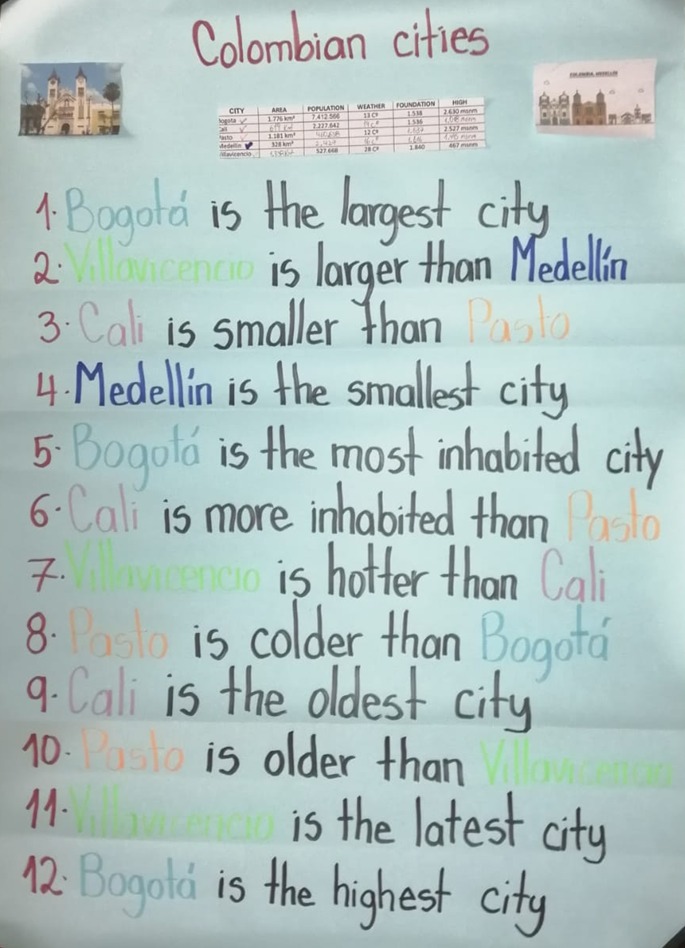 Colombian cities
COLOMBIA, MEDELLIN
CITY AREA POPULATION WEATHER FOUNDATION HIGH
Bogota 1.776 km² 7.412.566 13 C° 1.538 2.630 msnm
Cali 2.227.642 1.536
Pasto 1.181 km² 12 C° 2.527 msnm
Medellin 328 km²
Villavicencio 527.668 28 C° 1.840 467 msnm
1. Bogotá is the largest city
2. Villavicencio is larger than Medellín
3. Cali is smaller than Pasto
4. Medellín is the smallest city
5. Bogotá is the most inhabited city
6. Cali is more inhabited than Pasto
7. Villavicencio is hotter than Cali
8. Pasto is colder than Bogotá
9. Cali is the oldest city
10. Pasto is older than Villavicencio
11. Villavicencio is the latest city
12. Bogotá is the highest city